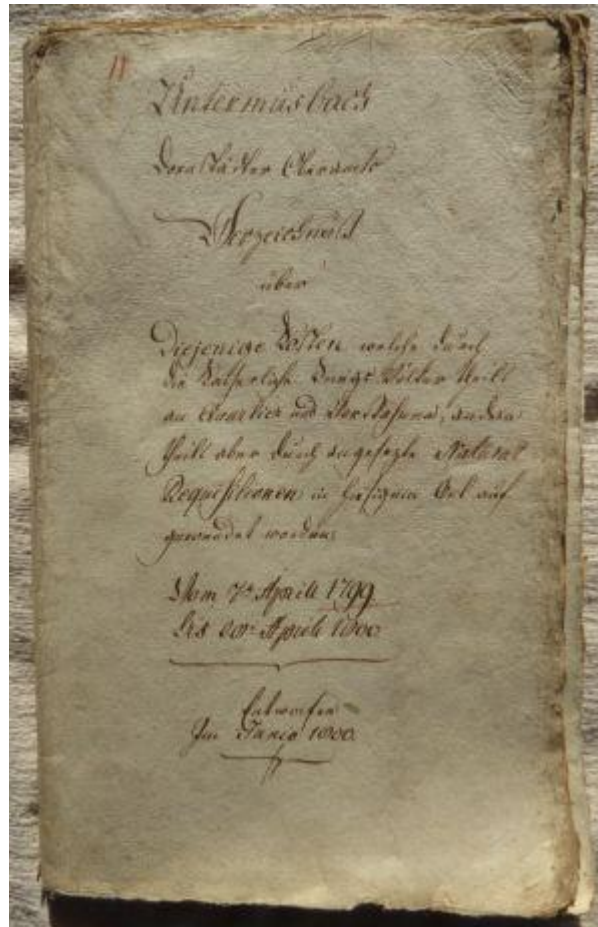 11
Untermüsbach
Dornstädter Oberamts
Verzeichniß
über
Diejenige Kösten welche durch
die Kaÿserliche Kriegs Völker theils
an Quartier und Vorspann, andern
theils aber durch angesezte Natural
Requisitionen in hiesigem Ort auf
gewendet worden
Vom 7ⁿ Aprill 1799.
bis Aprill 1800
Entworfen
Im Junio 1800.